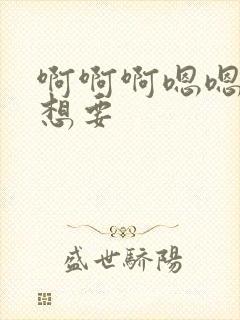 啊啊啊嗯嗯
想要
盛世驕陽